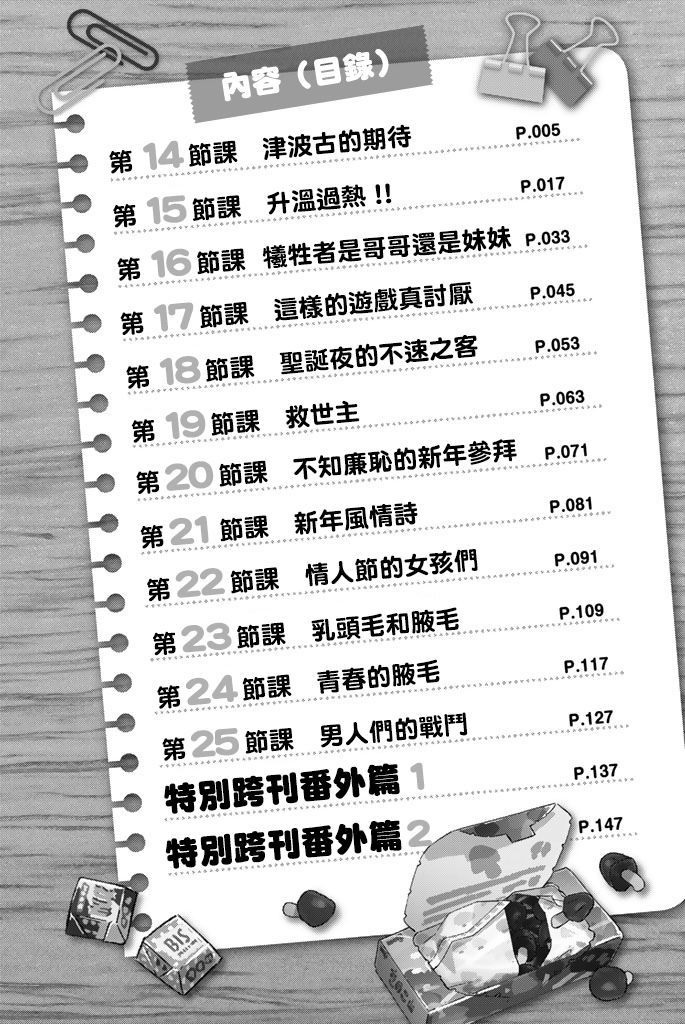 內容（目錄）
第14節課 津波古的期待 P.005
第15節課 升溫過熱!! P.017
第16節課 犧牲者是哥哥還是妹妹 P.033
第17節課 這樣的遊戲真討厭 P.045
第18節課 聖誕夜的不速之客 P.053
第19節課 救世主 P.063
第20節課 不知廉恥的新年參拜 P.071
第21節課 新年風情詩 P.081
第22節課 情人節的女孩們 P.091
第23節課 乳頭毛和腋毛 P.109
第24節課 青春的腋毛 P.117
第25節課 男人們的戰鬥 P.127
特別跨刊番外篇1 P.137
特別跨刊番外篇2 P.147
BIS